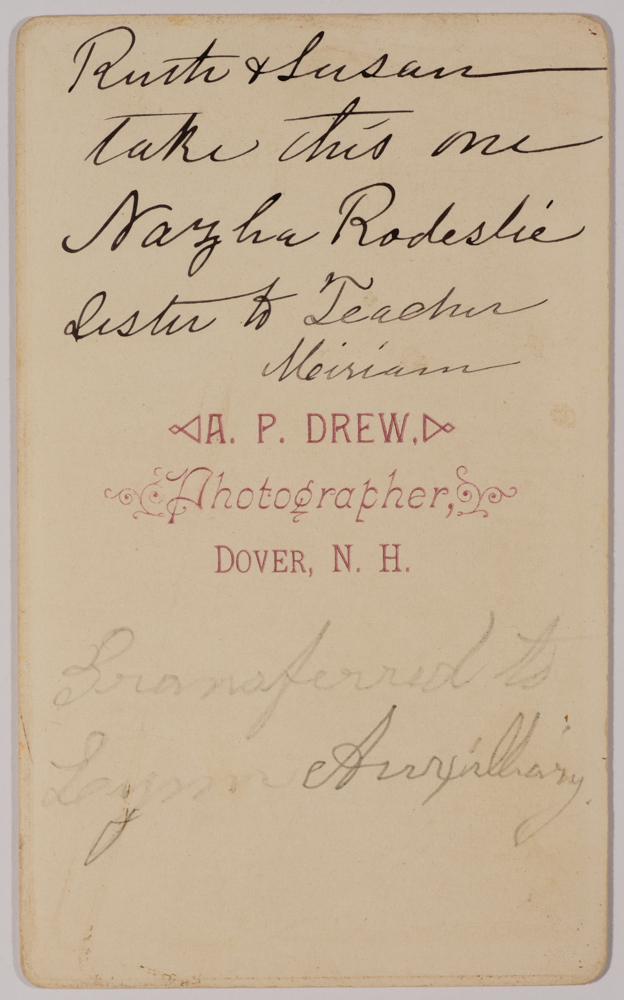 Ruth & Susan
take this one
Nazha Rodeslie
Sister to Teacher
Meiriam
A. P. DREW,
Photographer,
DOVER, N. H.
Transferred to
Lynn Auxilliary.